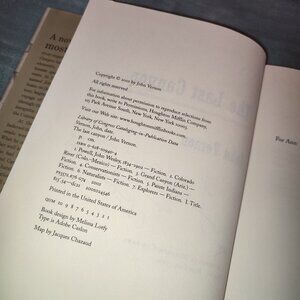 A no
most
Copyright © 2001 by John Vernon
All rights reserved
For information about permission to reproduce selections from
this book, write to Permissions, Houghton Mifflin Company,
215 Park Avenue South, New York, New York 10003.
Visit our Web site: www.houghtonmifflinbooks.com.
Library of Congress Cataloging-in-Publication Data
Vernon, John, date.
The last canyon / John Vernon.
p. cm.
1. Powell, John Wesley, 1834–1902 — Fiction. 2. Colorado
River (Colo.–Mexico) — Fiction. 3. Grand Canyon (Ariz.) —
Fiction. 4. Conservationists — Fiction. 5. Paiute Indians —
Fiction. 6. Naturalists — Fiction. 7. Explorers — Fiction. I. Title.
Printed in the United States of America
QUM 10 9 8 7 6 5 4 3 2 1
Book design by Melissa Lotfy
Type is Adobe Caslon
Map by Jacques Chazaud
For Ann